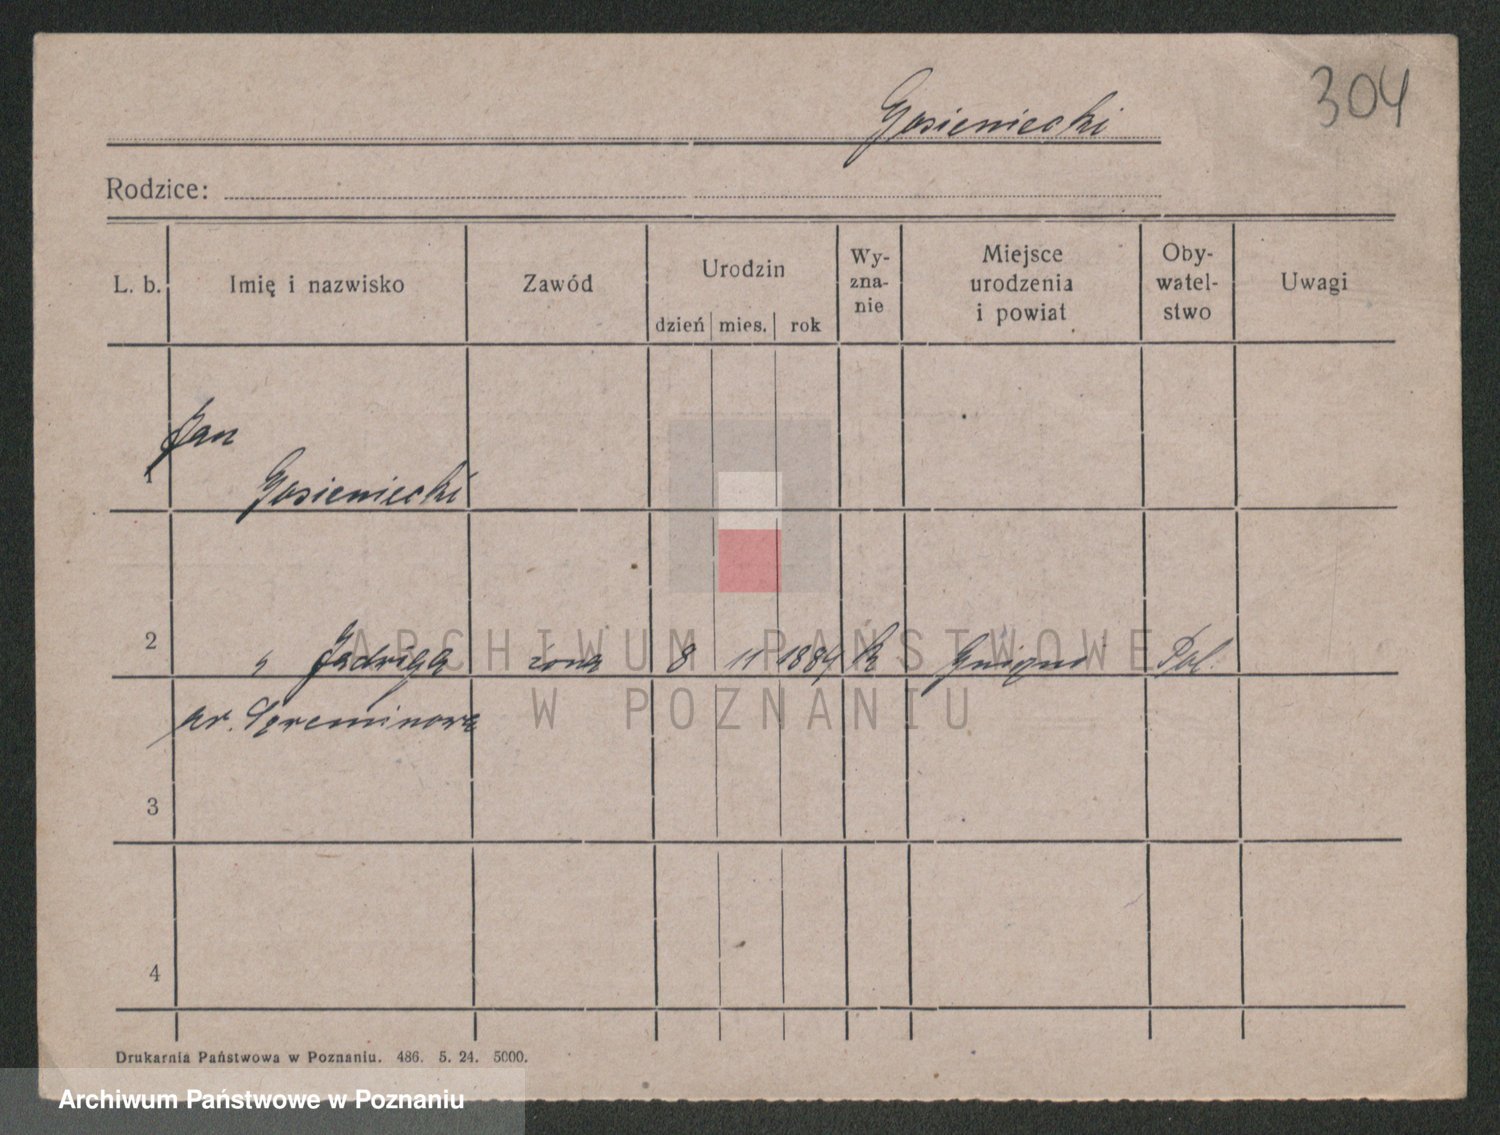 304
Gosieniecki
Rodzice:
L. b. Imię i nazwisko Zawód Urodzin dzień mies. rok Wy-zna-nie Miejsce urodzenia i powiat Oby-watel-stwo Uwagi
Jan
1 Gosieniecki
2 " Jadwiga żona 8 11 1884 k Pol.
3
4
ARCHIWUM PAŃSTWOWE
W POZNANIU
Drukarnia Państwowa w Poznaniu. 486. 5. 24. 5000.
Archiwum Państwowe w Poznaniu